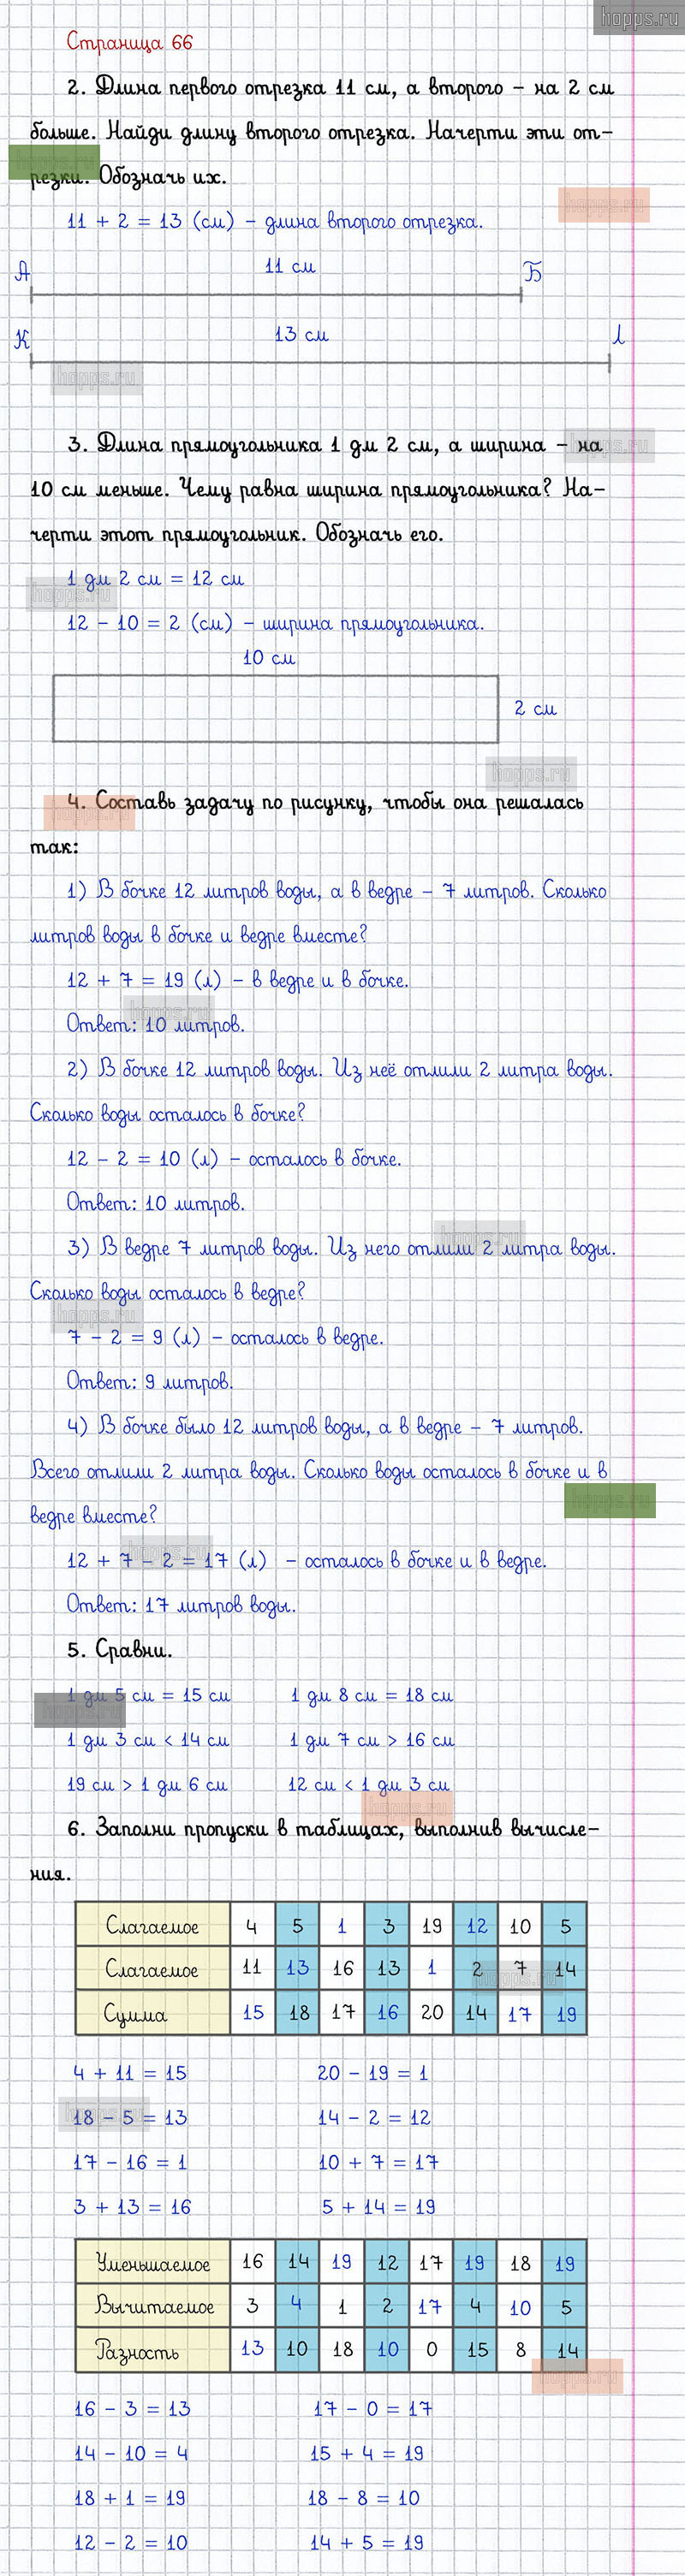 hopps.ru
Страница 66
2. Длина первого отрезка 11 см, а второго – на 2 см
больше. Найди длину второго отрезка. Начерти эти от-
hopps.ru
резки. Обозначь их.
hopps.ru
11 + 2 = 13 (см) – длина второго отрезка.
А 11 см Б
К 13 см Л
hopps.ru
3. Длина прямоугольника 1 дм 2 см, а ширина – на
hopps.ru
10 см меньше. Чему равна ширина прямоугольника? На-
черти этот прямоугольник. Обозначь его.
1 дм 2 см = 12 см
hopps.ru
12 – 10 = 2 (см) – ширина прямоугольника.
10 см
2 см
hopps.ru
4. Составь задачу по рисунку, чтобы она решалась
hopps.ru
так:
1) В бочке 12 литров воды, а в ведре – 7 литров. Сколько
литров воды в бочке и ведре вместе?
12 + 7 = 19 (л) – в ведре и в бочке.
hopps.ru
Ответ: 10 литров.
2) В бочке 12 литров воды. Из неё отлили 2 литра воды.
Сколько воды осталось в бочке?
12 – 2 = 10 (л) – осталось в бочке.
Ответ: 10 литров.
hopps.ru
3) В ведре 7 литров воды. Из него отлили 2 литра воды.
Сколько воды осталось в ведре?
hopps.ru
7 – 2 = 9 (л) – осталось в ведре.
Ответ: 9 литров.
4) В бочке было 12 литров воды, а в ведре – 7 литров.
Всего отлили 2 литра воды. Сколько воды осталось в бочке и в
hopps.ru
ведре вместе?
hopps.ru
12 + 7 – 2 = 17 (л) – осталось в бочке и в ведре.
Ответ: 17 литров воды.
5. Сравни.
1 дм 5 см = 15 см 1 дм 8 см = 18 см
hopps.ru
1 дм 3 см < 14 см 1 дм 7 см > 16 см
19 см > 1 дм 6 см 12 см < 1 дм 3 см
hopps.ru
6. Заполни пропуски в таблицах, выполнив вычисле-
ния.
Слагаемое 4 5 1 3 19 12 10 5
Слагаемое 11 13 16 13 1 2 7 14
hopps.ru
Сумма 15 18 17 16 20 14 17 19
4 + 11 = 15 20 – 19 = 1
hopps.ru
18 – 5 = 13 14 – 2 = 12
17 – 16 = 1 10 + 7 = 17
3 + 13 = 16 5 + 14 = 19
Уменьшаемое 16 14 19 12 17 19 18 19
Вычитаемое 3 4 1 2 17 4 10 5
Разность 13 10 18 10 0 15 8 14
hopps.ru
16 – 3 = 13 17 – 0 = 17
14 – 10 = 4 15 + 4 = 19
18 + 1 = 19 18 – 8 = 10
12 – 2 = 10 14 + 5 = 19